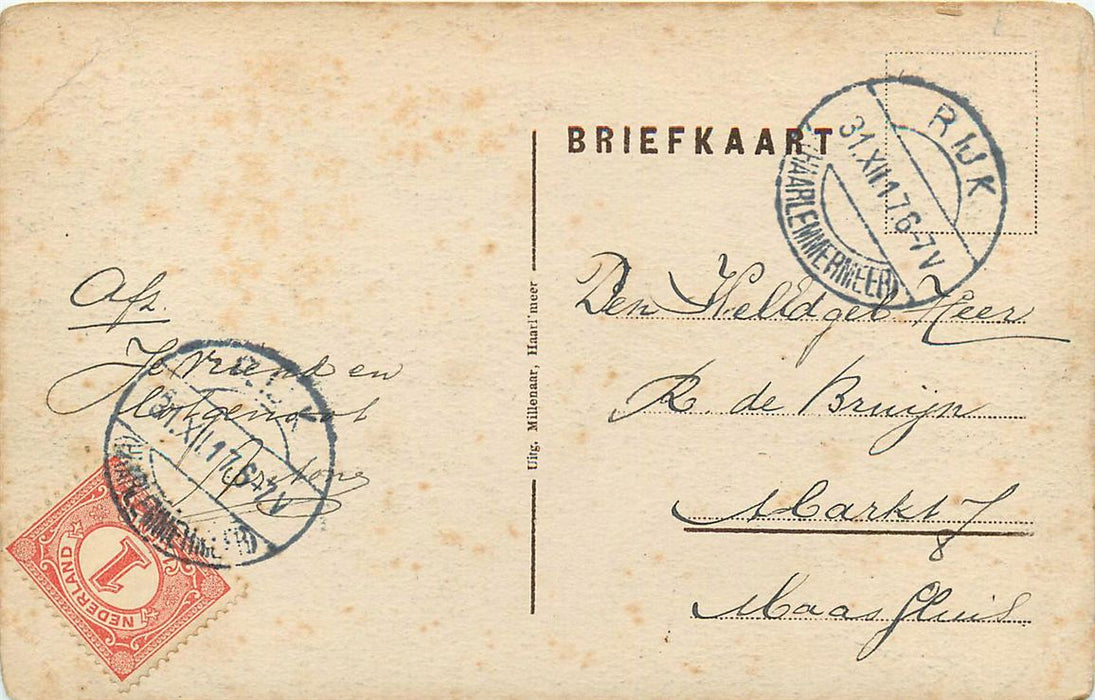 BRIEFKAART
RIJK
31.XII.17 6-7V
(HAARLEMMERMEER)
Afz.
Je vriend en
Lotgenoot
31.XII.17 6-7V
(HAARLEMMERMEER)
NEDERLAND
1
Uitg. Millenaar, Haarl'meer
Den WelEdgeb Heer
K. de Bruijn
Markt 7
8
Maassluis